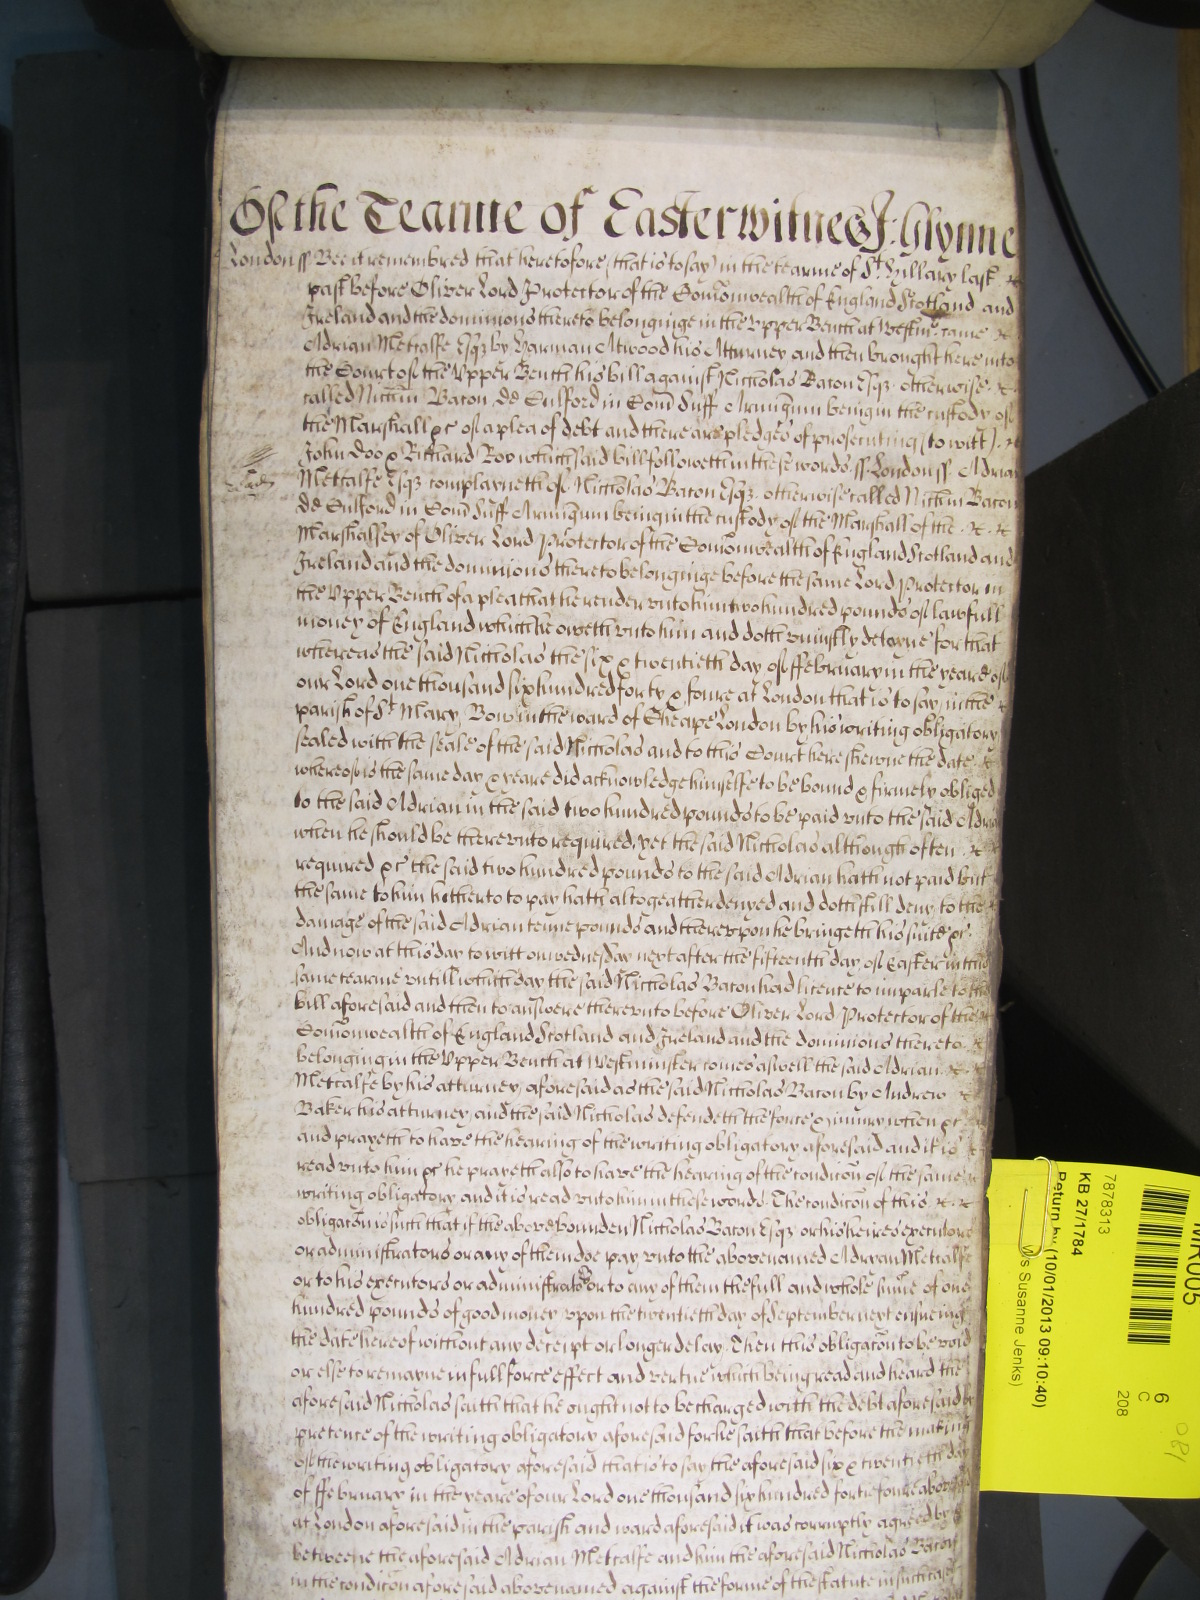 Of the Tearme of Easter witnes J: Glynne
London ss Bee it remembred that heretofore (that is to say) in the tearme of St. Hillary last
past before Oliver Lord Protector of the Comonwealth of England Scotland and
Ireland and the dominions thereto belonginge in the Upper Bench at Westmr. came
Adrian Metcalfe Esqr by Harman Atwood his Atturney and then brought here into
the Court of the Upper Bench his bill against Nicholas Bacon Esqr. otherwise
called Nichm Bacon de Culford in Com Suff Armigum being in the custody of
the Marshall &c of a plea of debt and there are pledges of prosecuting (to witt)
John Doo & Richard Roo which said bill followeth in these words ss London ss Adrian
Metcalfe Esqr complayneth of Nicholas Bacon Esqr. otherwise called Nichm Bacon
de Culford in Com Suff Armigum being in the custody of the Marshall of the
Marshalsey of Oliver Lord Protector of the Comonwealth of England Scotland and
Ireland and the dominions thereto belonginge before the same Lord Protector in
the Upper Bench of a plea that he render unto him two hundred pounds of lawfull
money of England which he oweth unto him and doth uniustly deteyne for that
whereas the said Nicholas the six & twentieth day of ffebruary in the yeare of
our Lord one thousand six hundred forty & foure at London that is to say in the
parish of St Mary Bow in the ward of Cheape London by his writing obligatory
sealed with the seale of the said Nicholas and to this Court here shewne the date
whereof is the same day & yeare did acknowledge himselfe to be bound & firmely obliged
to the said Adrian in the said two hundred pounds to be paid unto the said Adrian
when he should be thereunto required yet the said Nicholas although often
required &c the said two hundred pounds to the said Adrian hath not paid but
the same to him hitherto to pay hath altogeather denyed and doth still deny to the
damage of the said Adrian tenne pounds and thereupon he bringeth his suite &c.
And now at this day to witt on wednesday next after the fifteenth day of Easter in this
same tearme untill which day the said Nicholas Bacon had licence to imparle to the
bill aforesaid and then to answere thereunto before Oliver Lord Protector of the
Comonwealth of England Scotland and Ireland and the dominions thereto
belonging in the Upper Bench at Westminster comes aswell the said Adrian
Metcalfe by his atturney aforesaid as the said Nicholas Bacon by Andrew
Baker his atturney and the said Nicholas defendeth the force & iniury when &c
and prayeth to have the hearing of the writing obligatory aforesaid and it is
read unto him &c he prayeth also to have the hearing of the condicon of the same
writing obligatory and it is read unto him in these words The condicon of this
obligacon is such that if the above bounden Nicholas Bacon Esqr or his heires executors
or administrators or any of them doe pay unto the abovenamed Adryan Metcalfe
or to his executors or administrators or to any of them the full and whole sume of one
hundred pounds of good money upon the twentieth day of September next ensueing
the date hereof without any deceipt or longer delay Then this obligacon to be void
or else to remayne in full force effect and vertue which being read and heard the
aforesaid Nicholas saith that he ought not to be charged with the debt aforesaid by
pretence of the writing obligatory aforesaid for he saith that before the making
of the writing obligatory aforesaid that is to say the aforesaid six & twentieth day
of ffebruary in the yeare of our Lord one thousand six hundred fortie foure abovesaid
at London aforesaid in the parish and ward aforesaid it was corruptly agreed by &
betweene the aforesaid Adrian Metcalfe and him the aforesaid Nicholas Bacon
in the condicon aforesaid abovenamed against the forme of the statute in such case
MR005
7878313
KB 27/1784
Return by (10/01/2013 09:10:40)
s Susanne Jenks)
6
C
208